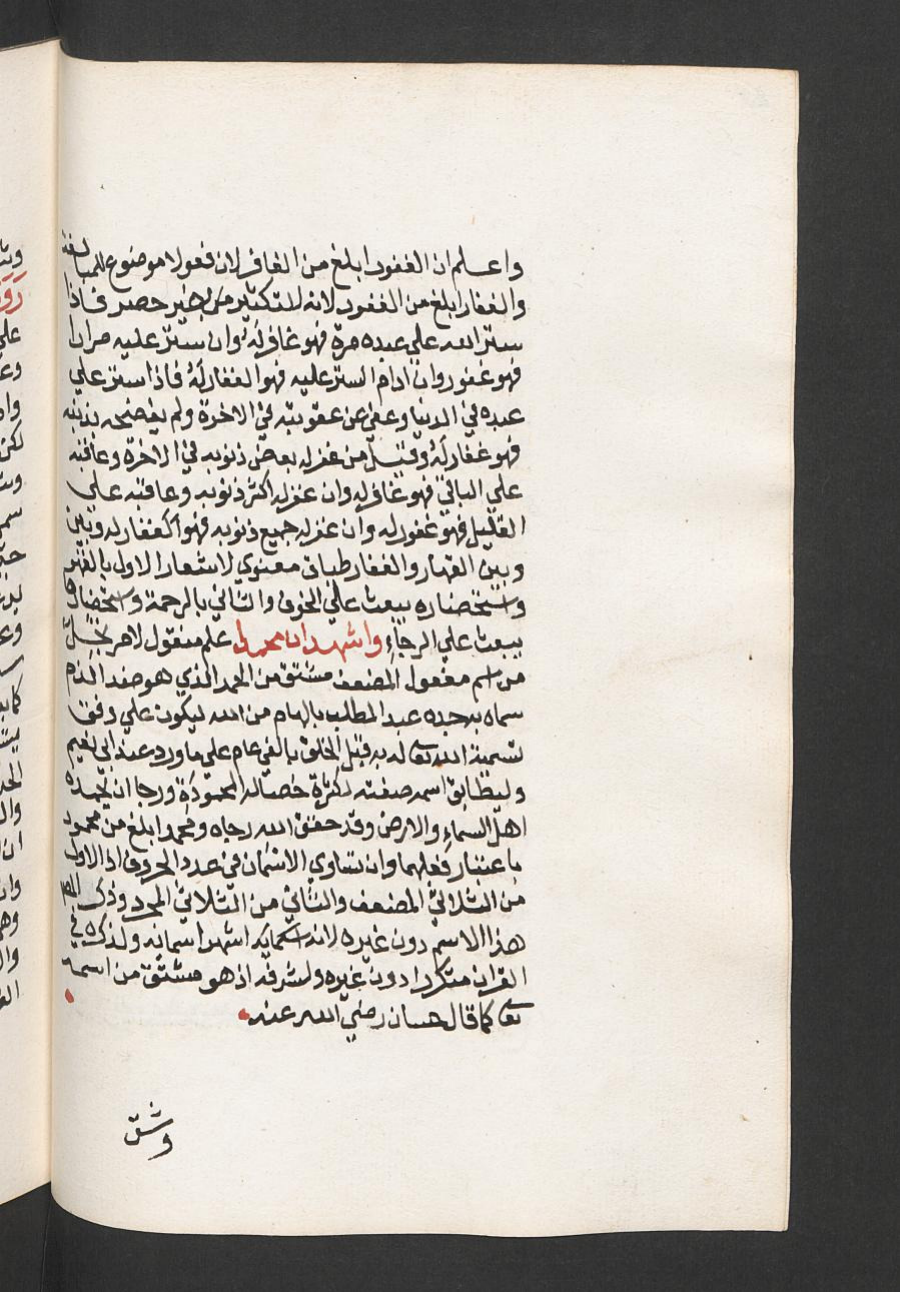 واعلم ان الغفور ابلغ من الغافر لان فعولا موضوع للمبالغة
والغفار ابلغ من الغفور لانه للتكثير من غير حصر فاذا
ستر الله علي عبده مرة فهو غافر له وان ستر عليه مرارا
فهو غفور وان ادام الستر عليه فهو الغفار له فاذا ستر علي
عبده في الدنيا وعفي عن عقوبته في الاخرة ولم يفضحه بذنبه
فهو غفار له وقيل من غفر له بعض ذنوبه في الاخرة وعاقبه
علي الباقي فهو غافر له وان غفر له اكثر ذنوبه وعاقبه علي
القليل فهو غفور له وان غفر له جميع ذنوبه فهو الغفار له وبين
وبين القهار والغفار طباق معنوي لاشعار الاول بالقهر
واستحضاره يبعث علي الخوف والثاني بالرحمة واستحضارها
يبعث علي الرجاء واشهد ان محمدا علم منقول لامر
من اسم مفعول المضعف مشتق من الحمد الذي هو ضد الذم
سماه به جده عبد المطلب بالهام من الله ليكون علي وفق
تسمية الله تعالى له به قبل الخلق بالفي عام علي ما ورد عند ابي نعيم
وليطابق اسمه صفته لكثرة خصاله المحمودة ورجا ان يحمده
اهل السماء والارض وقد حقق الله رجاه ومحمد ابلغ من محمود
باعتبار فعلهما وان تساوي الاسمان في عدد الحروف اذ الاول
من الثلاثي المضعف والثاني من الثلاثي المجرد وذكر المص
هذا الاسم دون غيره لانه اشهر اسمائه ولذكره في
القران متكررا دون غيره ولشرفه اذ هو مشتق من اسمه
تعالى كما قال حسان رضي الله عنه
وشق